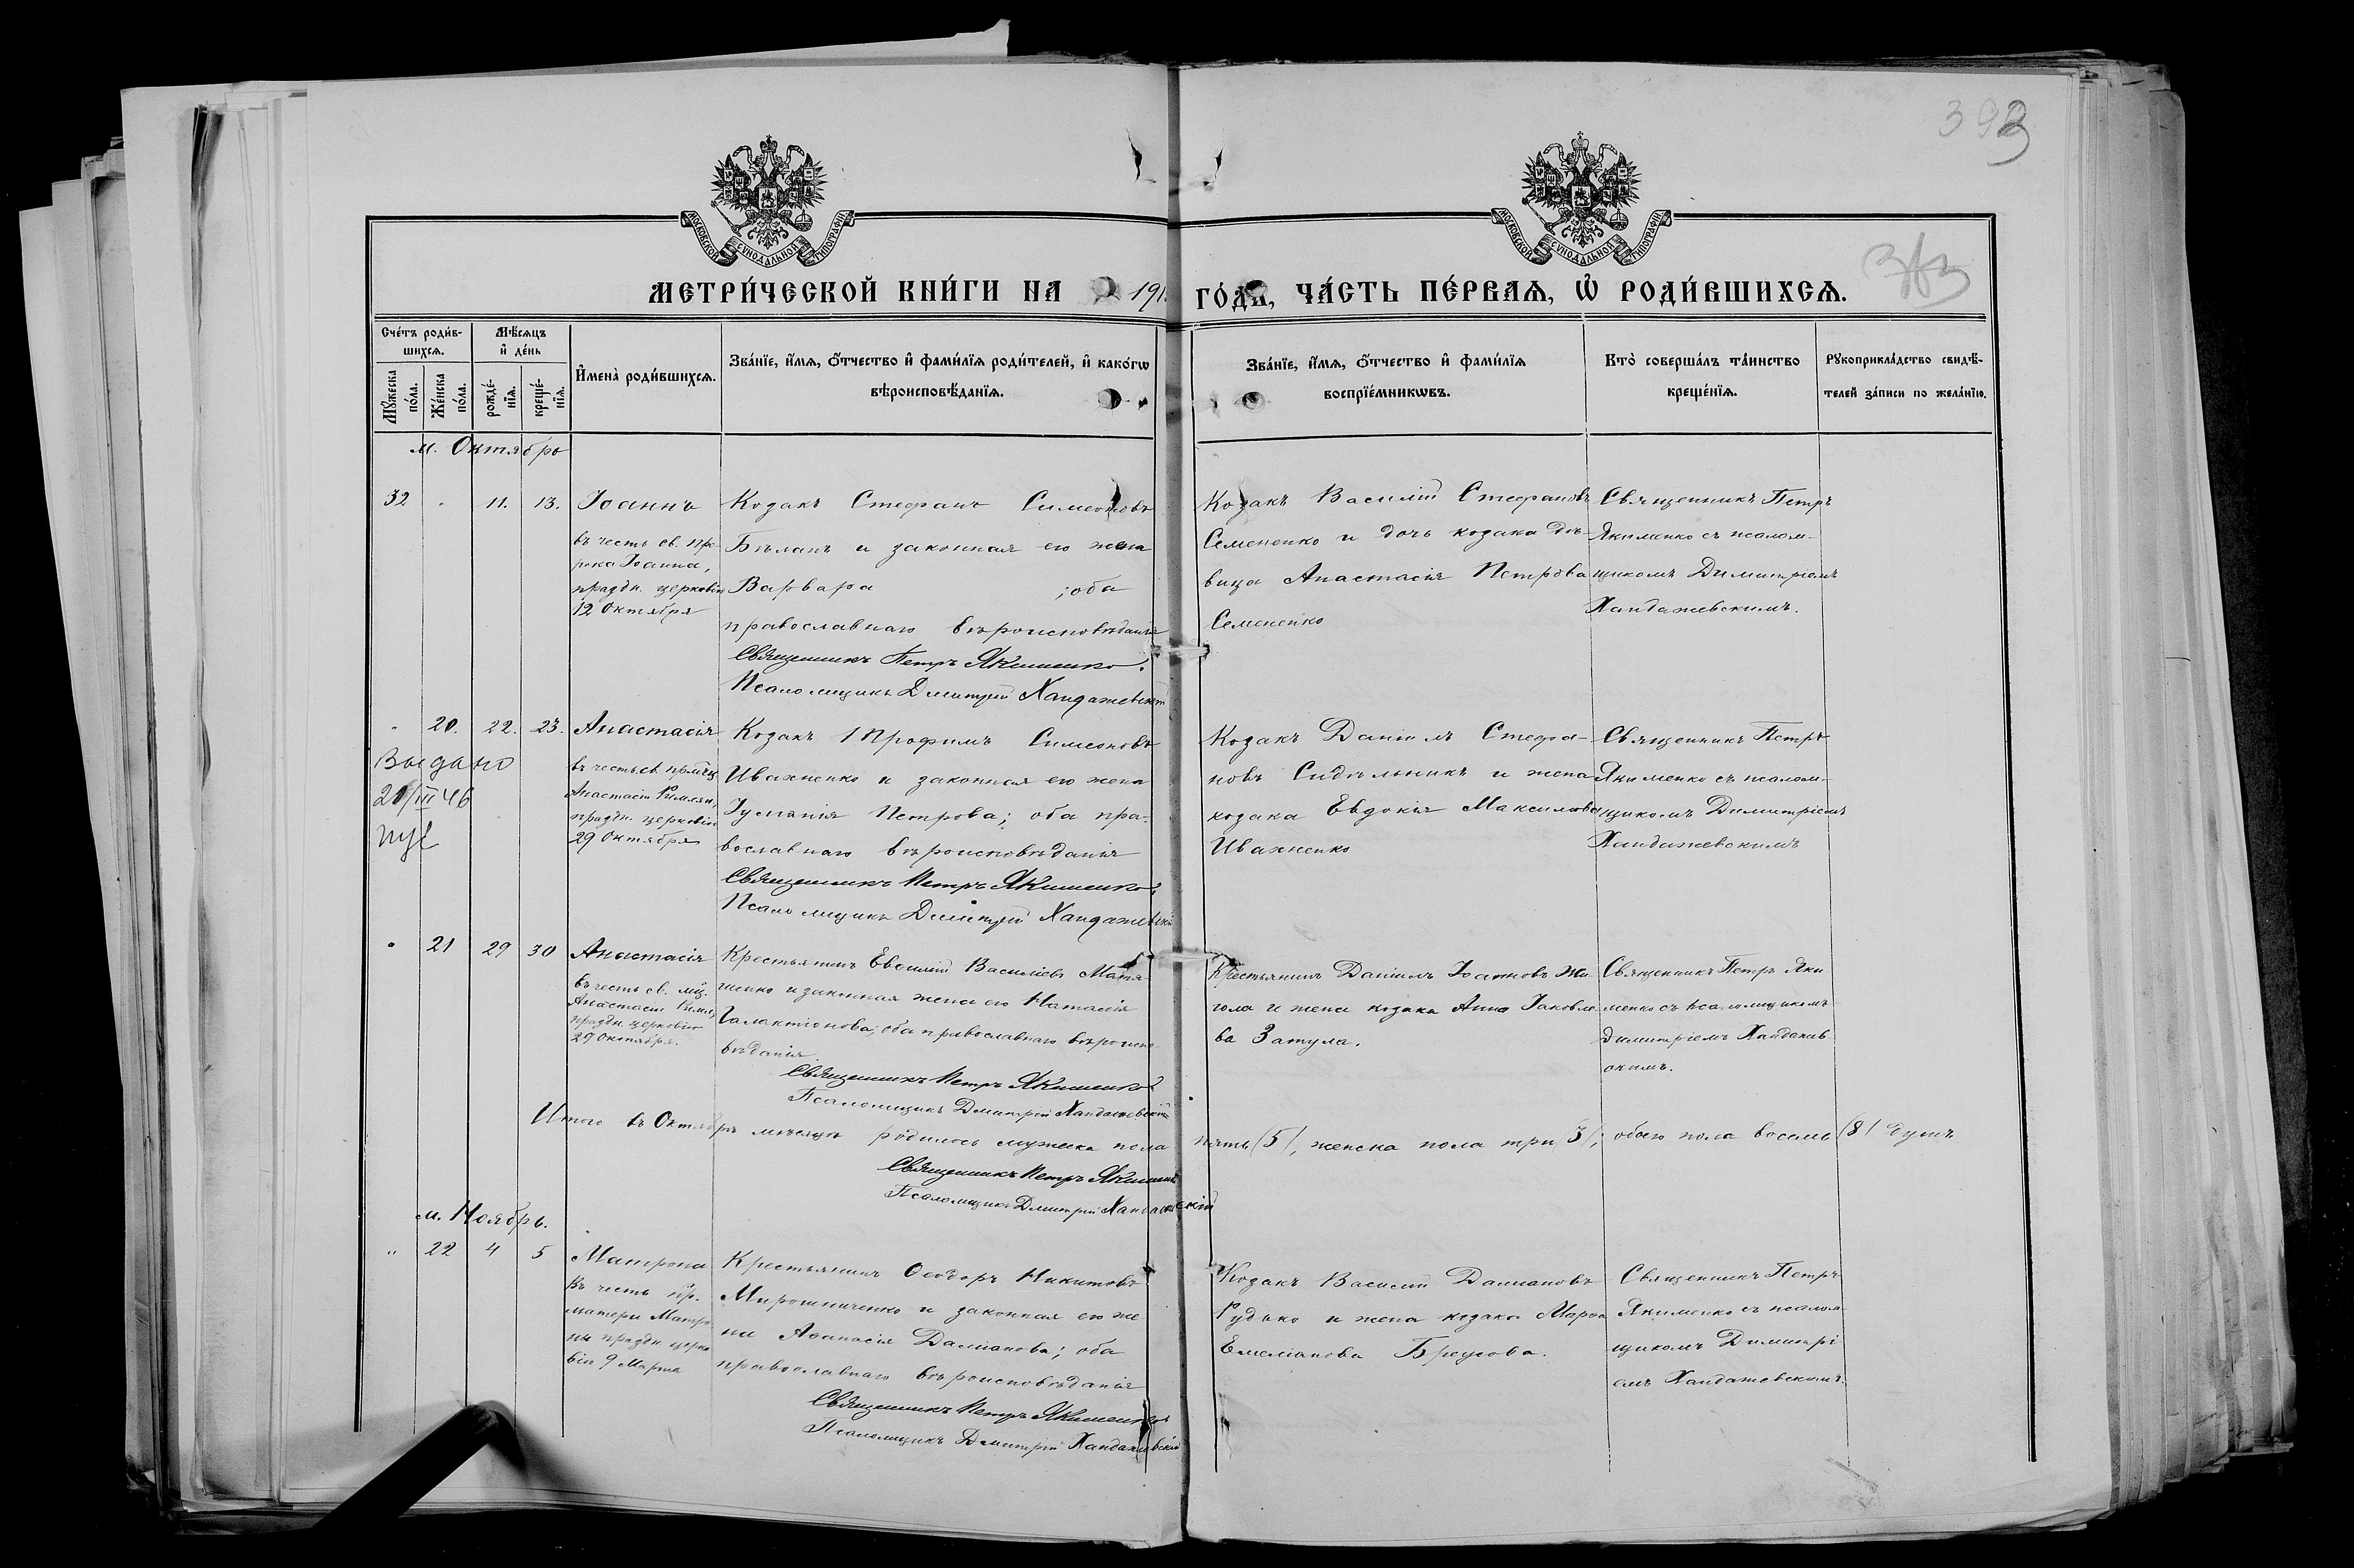 393
МОСКОВСКОЙ СѴНОДАЛЬНОЙ ТИПОГРАФІИ
МОСКОВСКОЙ СѴНОДАЛЬНОЙ ТИПОГРАФІИ
МЕТРИ́ЧЕСКОЙ КНИ́ГИ НА 191
ГО́ДА, ЧА́СТЬ ПЕ́РВАѦ, Ѡ҆ РОДИ́ВШИХСѦ.
Сче́тъ роди́в-
шихсѧ.
Мꙋ́жеска по́ла.
Же́нска по́ла.
Мѣ́сѧцъ
и҆ де́нь
рожде́-нїѧ.
креще́-нїѧ.
И҆мена̀ роди́вшихсѧ.
Зва́нїе, и҆́мѧ, ѻ҆́тчество и҆ фами́лїѧ роди́телей, и҆ како́гѡ
вѣроисповѣ́данїѧ.
Зва́нїе, и҆́мѧ, ѻ҆́тчество и҆ фами́лїѧ
воспрїе́мникѡвъ.
Кто̀ соверша́лъ та́инство
креще́нїѧ.
Рꙋкоприкла́дство свидѣ́-
телей за́писи по жела́нїю.
м. Октябрь
32 " 11. 13.
Іоаннъ
въ честь св. про-
рока Іоанна,
праздн. церковію
12 Октября
Козакъ Стефанъ Симеоновъ
Бѣланъ и законная его жена
Варвара ; оба
православнаго вѣроисповѣданія
Священникъ Петръ Якименко.
Псаломщикъ Дмитрій Хандажевскій
Козакъ Василій Стефановъ
Семененко и дочь козака дѣ-
вица Анастасія Петрова
Семененко
Священникъ Петръ
Якименко съ псалом-
щикомъ Димитріемъ
Хандажевскимъ.
" 20. 22. 23.
Выдано
21/III 46
Анастасія
въ честь св. прмчц
Анастасіи Римлян,
праздн. церковію
29 Октября
Козакъ Трофимъ Симеоновъ
Ивахненко и законная его жена
Іуліанія Петрова; оба пра-
вославнаго вѣроисповѣданія
Священникъ Петръ Якименко.
Псаломщикъ Дмитрій Хандажевскій
Козакъ Даніилъ Стефа-
новъ Сидѣльникъ и жена
козака Евдокія Максимова
Ивахненко
Священникъ Петръ
Якименко съ псалом-
щикомъ Димитріемъ
Хандажевскимъ
" 21 29 30
Анастасія
въ честь св. мц.
Анастасіи Римл,
праздн. церковію
29 Октября.
Крестьянинъ Евсилій Василіевъ
и законная жена его Наталія
Галактіонова; оба православнаго вѣроиспо-
вѣданія.
Священникъ Петръ Якименко
Псаломщикъ Дмитрій Хандажевскій
Крестьянинъ Даніилъ Іоанновъ Жи
гола и жена козака Анна Іаковле
ва Затула.
Священникъ Петръ Яки
менко съ псаломщикомъ
Димитріемъ Хандажев
скимъ.
Итого въ Октябрѣ мѣсяцѣ родилось мужеска пола пять (5), женска пола три (3), обоего пола восемь (8) душъ
Священникъ Петръ Якименко
Псаломщикъ Дмитрій Хандажевскій
м. Ноябрь.
" 22 4 5
Матрона
Въ честь пр.
матери Матро
ны праздн. церко
вію 9 Марта
Крестьянинъ Ѳеодоръ Никитовъ
Мирошниченко и законная его же
на Аѳанасія Даміанова; оба
православнаго вѣроисповѣданія
Священникъ Петръ Якименко
Псаломщикъ Дмитрій Хандажевскій
Козакъ Василій Даміановъ
Рудько и жена козака Марѳа
Емеліанова
Священникъ Петръ
Якименко съ псалом
щикомъ Димитрі
емъ Хандажевскимъ.